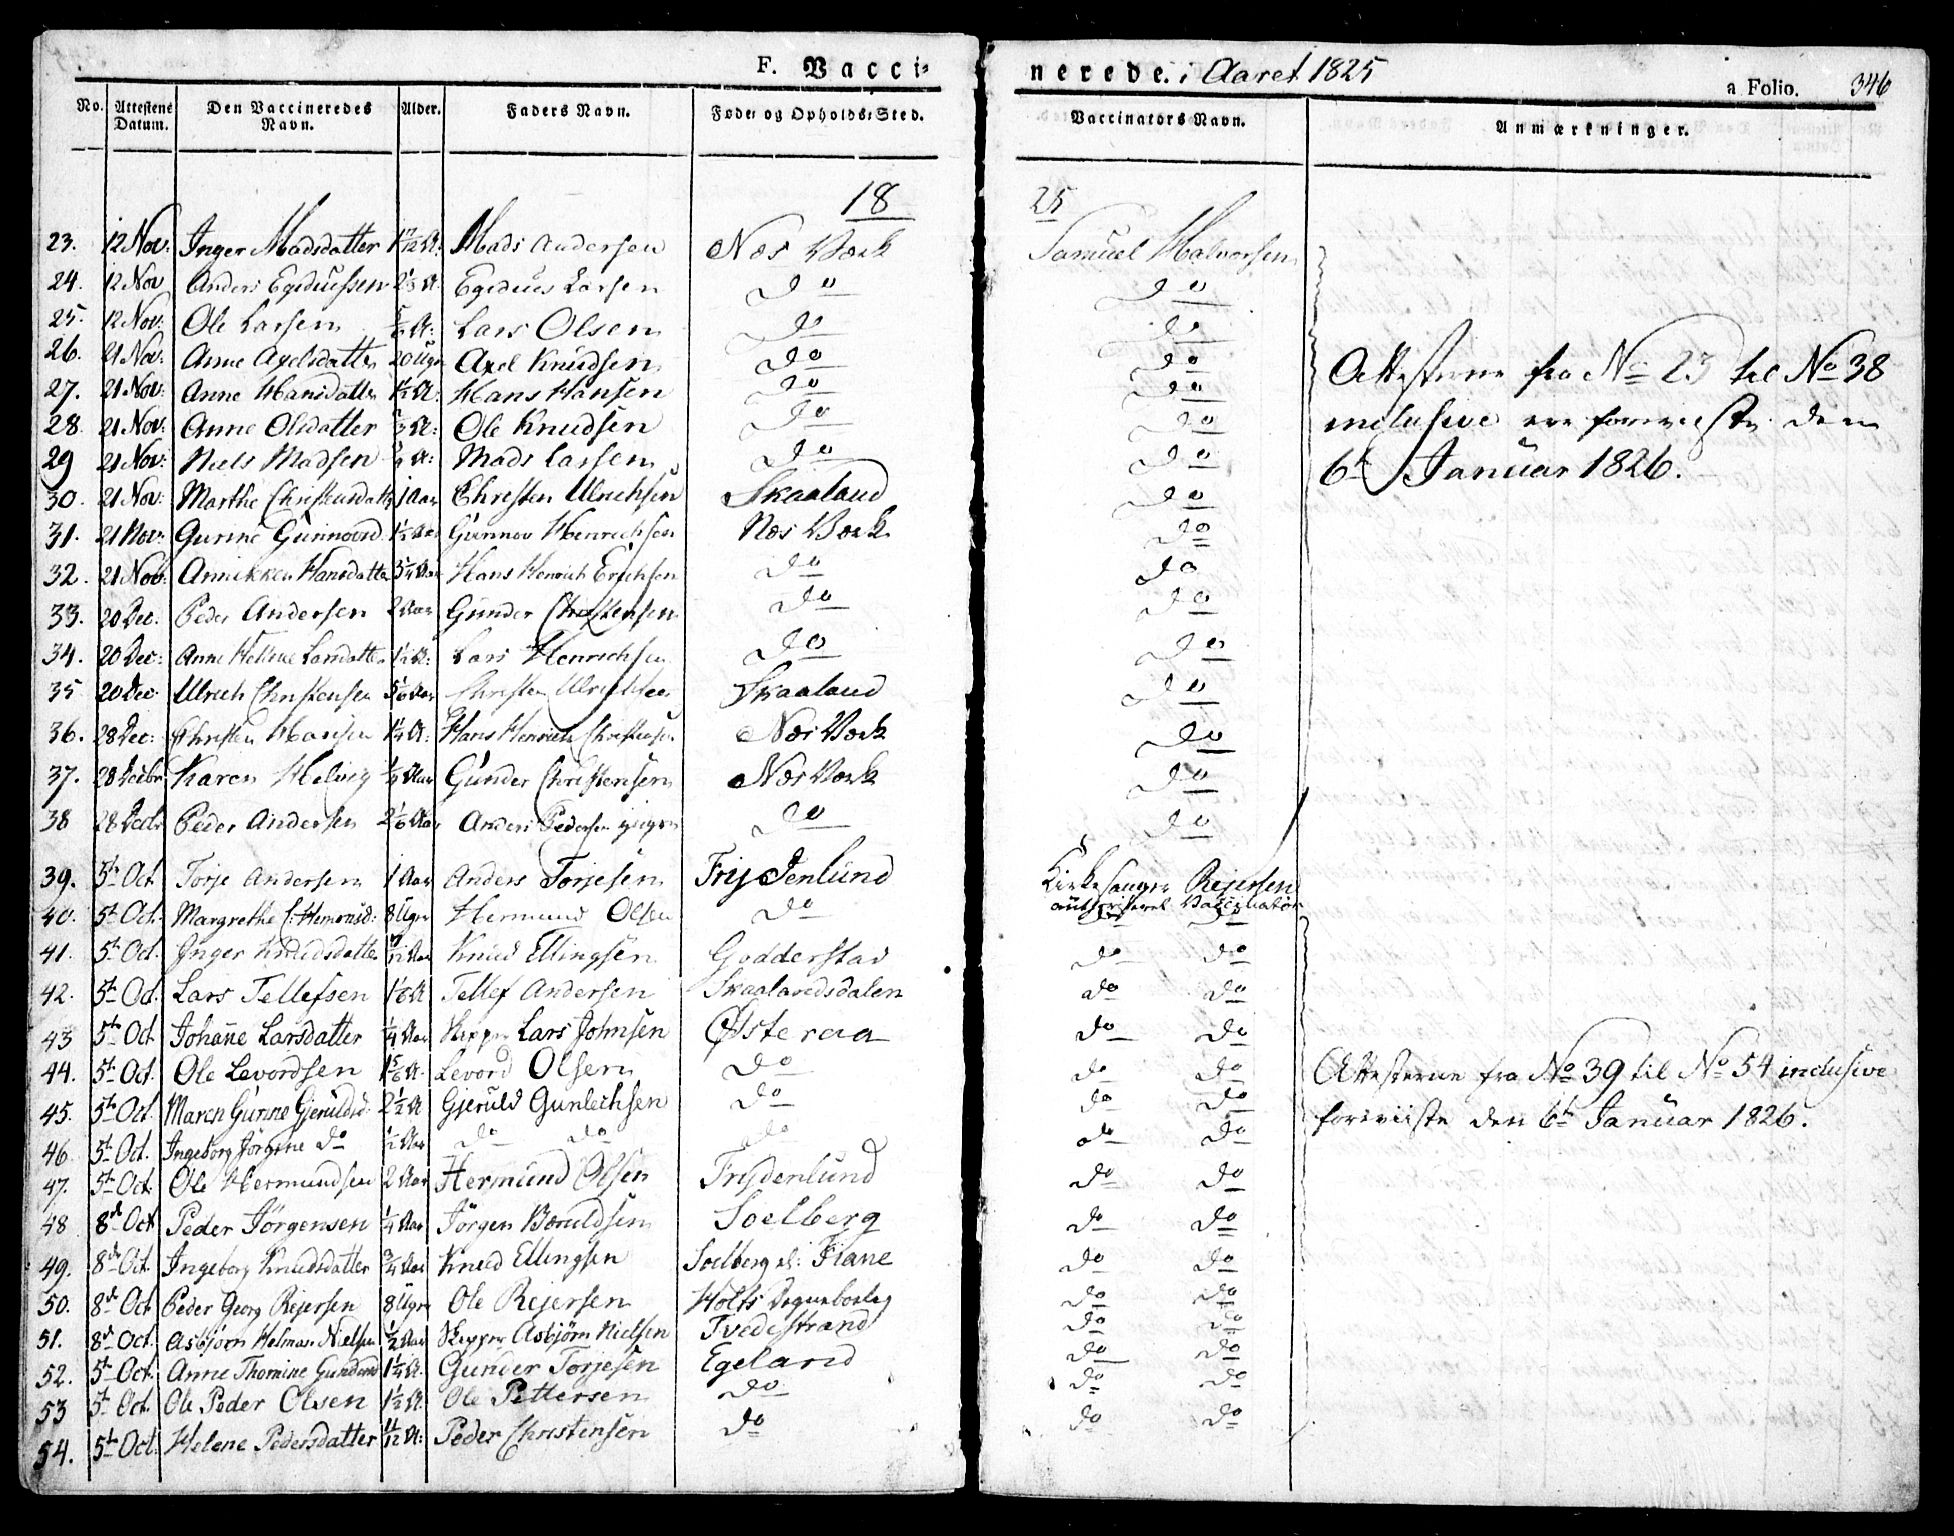 F. Vacci=
nerede. i Aaret 1825
a Folio. 346
No. Attestens Datum. Den Vaccineredes Navn. Alder. Faders Navn. Føde= og Opholds=Sted. Vaccinators Navn. Anmærkninger.
18 25
23. 12 Nov: Inger Madsdatter Mads Andersen Nes Værk Samuel Halvorsen
24. 12 Nov Anders Egedeussen Egedeus Larsen do do
25. 12 Nov: Ole Larsen Lars Olsen do do
26. 21 Nov: Anne Axelsdatter 20 Uger Axel Knudsen do do
27. 21 Nov: Anne Hansdatter Hans Hansen do do
28. 21 Nov: Anne Olsdatter Ole Knudsen do do
29 21 Nov: Niels Madsen Mads Larsen do do
30. 21 Nov: Marthe Christensdatt 1 Aar Christen Ulrichsen Skaaland do
31. 21 Nov: Gurine Gunnovsd Gunnov Henrichsen Nes Værk do
32. 21 Nov: Annikken Hansdatter Hans Henrich Erichsen do do
33. 20 Dec: Peder Andersen 2 Aar Gunder Christensen do do
34. 20 Dec: Anne Helene Larsdatter Lars Henrichsen do do
35 20 Dec Ulrich Christensen Christen Ulrichsen Skaaland do
36. 28 Dec: Christen Hansen Hans Henrich Christensen Nes Værk do
37. 28 Decbr Karen Helvig Gunder Christensen Nes Værk do
38 28 Decbr Peder Andersen Anders Pedersen do do
Attesterne fra No 23 til No 38
inclusive ere foreviiste den
6te Januar 1826.
39. 5te Oct Torje Andersen 1 Aar Anders Torjesen Frydenlund Kirkesanger Rejersen
authoriseret Vaccinatør
40. 5te Oct. Margrethe C: Hermunsd: 8 Uger Hermund Olsen do do do
41. 5te Oct. Inger Knudsdatter Knud Ellingsen Godderstad do do
42. 5te Oct. Lars Tellefsen 1 1/6 A Tellef Andersen Skaalandsdalen do do
43 5te Oct Johanne Larsdatter 1/4 Aar Skipper Lars Johnsen Østeraa do do
44. 5te Oct. Ole Levordsen 1 5/6 A. Levord Olsen do do do
45. 5te Oct. Maren Gunne Gjeruldsd: 2 1/2 A Gjeruld Gunlechsen do do do
46 5te Oct. Ingeborg Jørgine do 1/2 Aar do do do do do
47. 5te Oct. Ole Hermundsen 2 Aar Hermund Olsen Frydenlund do do
48 8de Oct Peder Jørgensen 1/4 Aar Jørgen Bæruldsen Soelberg do do
49. 8de Oct. Ingeborg Knudsdatter 3/4 Aar Knud Ellingsen Soelberg el: Fiane do do
50. 8de Oct Peder Georg Rejersen 8 Uger Ole Rejersen Holts do do
51. 8de Oct. Asbjørn Helman Nielsen 1/2 Aar Skipper Asbjørn Nielsen Tvedestrand do do
52. 5te Oct. Anne Thomine Gundersd Gunder Torjesen Egeland do do
53 5te Oct. Ole Peder Olsen 1 1/2 A. Ole Pettersen do do do
54. 5te Oct: Helene Pedersdatter 11/12 A: Peder Christensen do do do
Attesterne fra No 39 til No 54 inclusive
foreviiste den 6te Januar 1826.